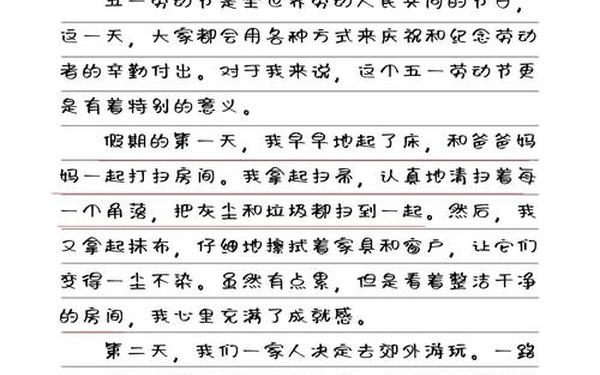 五一劳动节是全世界劳动人民共同的节日，
这一天，大家都会用各种方式来庆祝和纪念劳动
者的辛勤付出。对于我来说，这个五一劳动节更
是有着特别的意义。
假期的第一天，我早早地起了床，和爸爸妈
妈一起打扫房间。我拿起扫帚，认真地清扫着每
一个角落，把灰尘和垃圾都扫到一起。然后，我
又拿起抹布，仔细地擦拭着家具和窗户，让它们
变得一尘不染。虽然有点累，但是看着整洁干净
的房间，我心里充满了成就感。
第二天，我们一家人决定去郊外游玩。一路